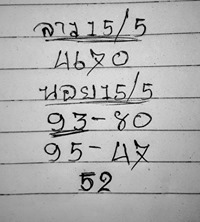 ลาว 15/5
4670
ฮอย 15/5
93-80
95-47
52